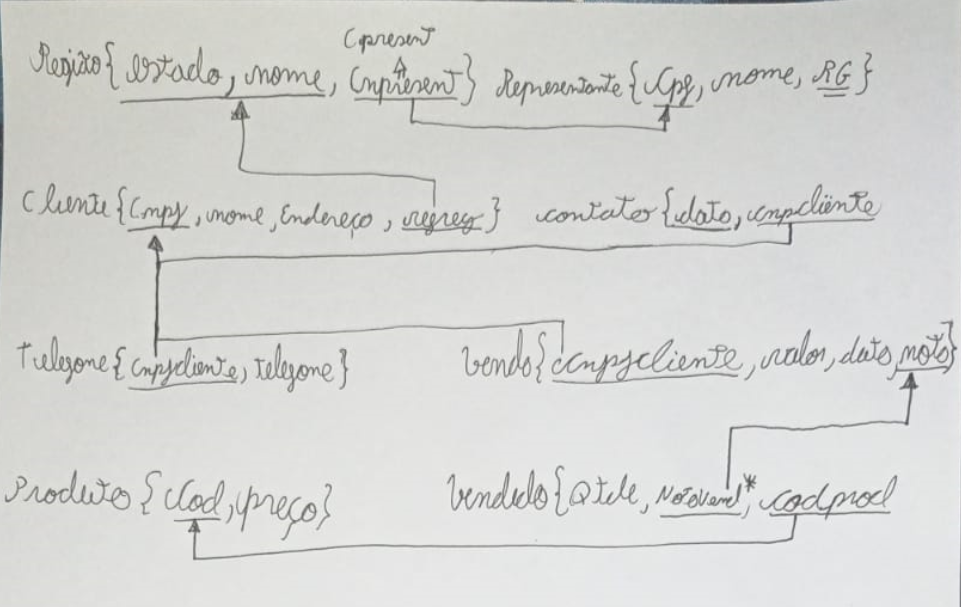 Cpresent
Região{estado, nome, Cnpresent} Representante{Cpf, nome, RG}
Cliente{Cnpj, nome, Endereço, regreg} contato{data, cnpcliente
Telefone{cnpjcliente, telefone} Venda{cnpjcliente, valor, data, nota}
Produto{Cod, preço} Vendido{Qtde, NotaVend*, codprod